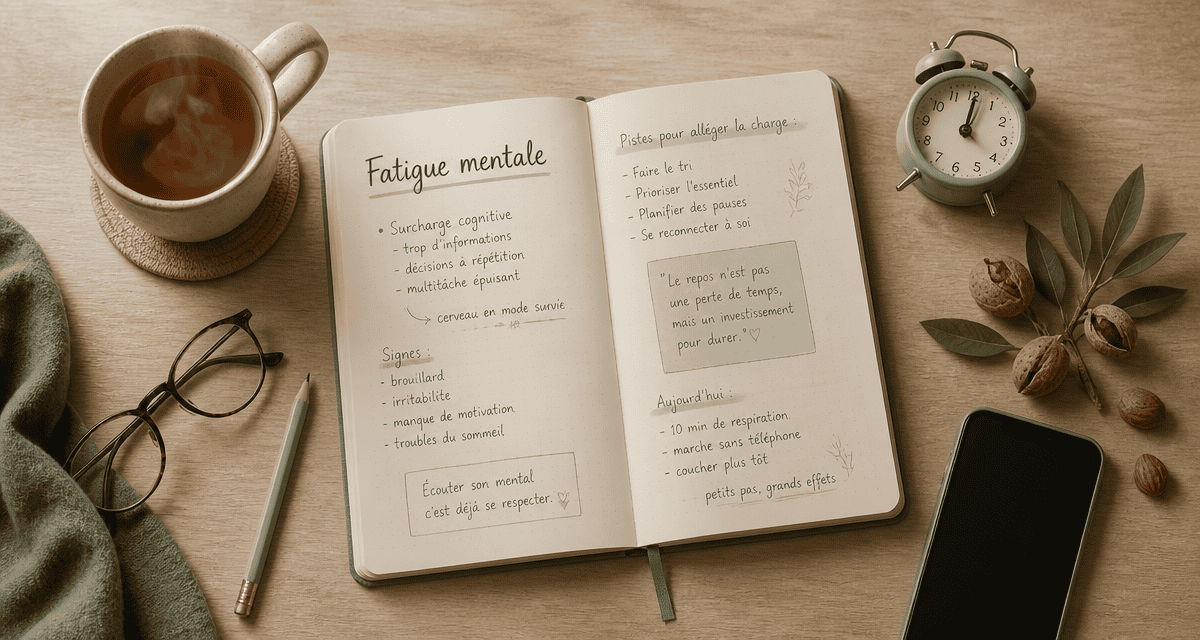 Fatigue mentale
• Surcharge cognitive
- trop d'informations
- décisions à répétition
- multitâche épuisant
cerveau en mode survie
Signes :
- brouillard
- irritabilite
- manque de motivation
- troubles du sommeil
Écouter son mental
c'est déjà se respecter.
Pistes pour alléger la charge :
- Faire le tri
- Prioriser l'essentiel
- Planifier des pauses
- Se reconnecter à soi
"Le repos n'est pas
une perte de temps,
mais un investissement
pour durer."
Aujourd'hui :
- 10 min de respiration
- marche sans téléphone
- coucher plus tôt
petits pas, grands effets
12
1
2
3
4
5
6
7
8
9
10
11